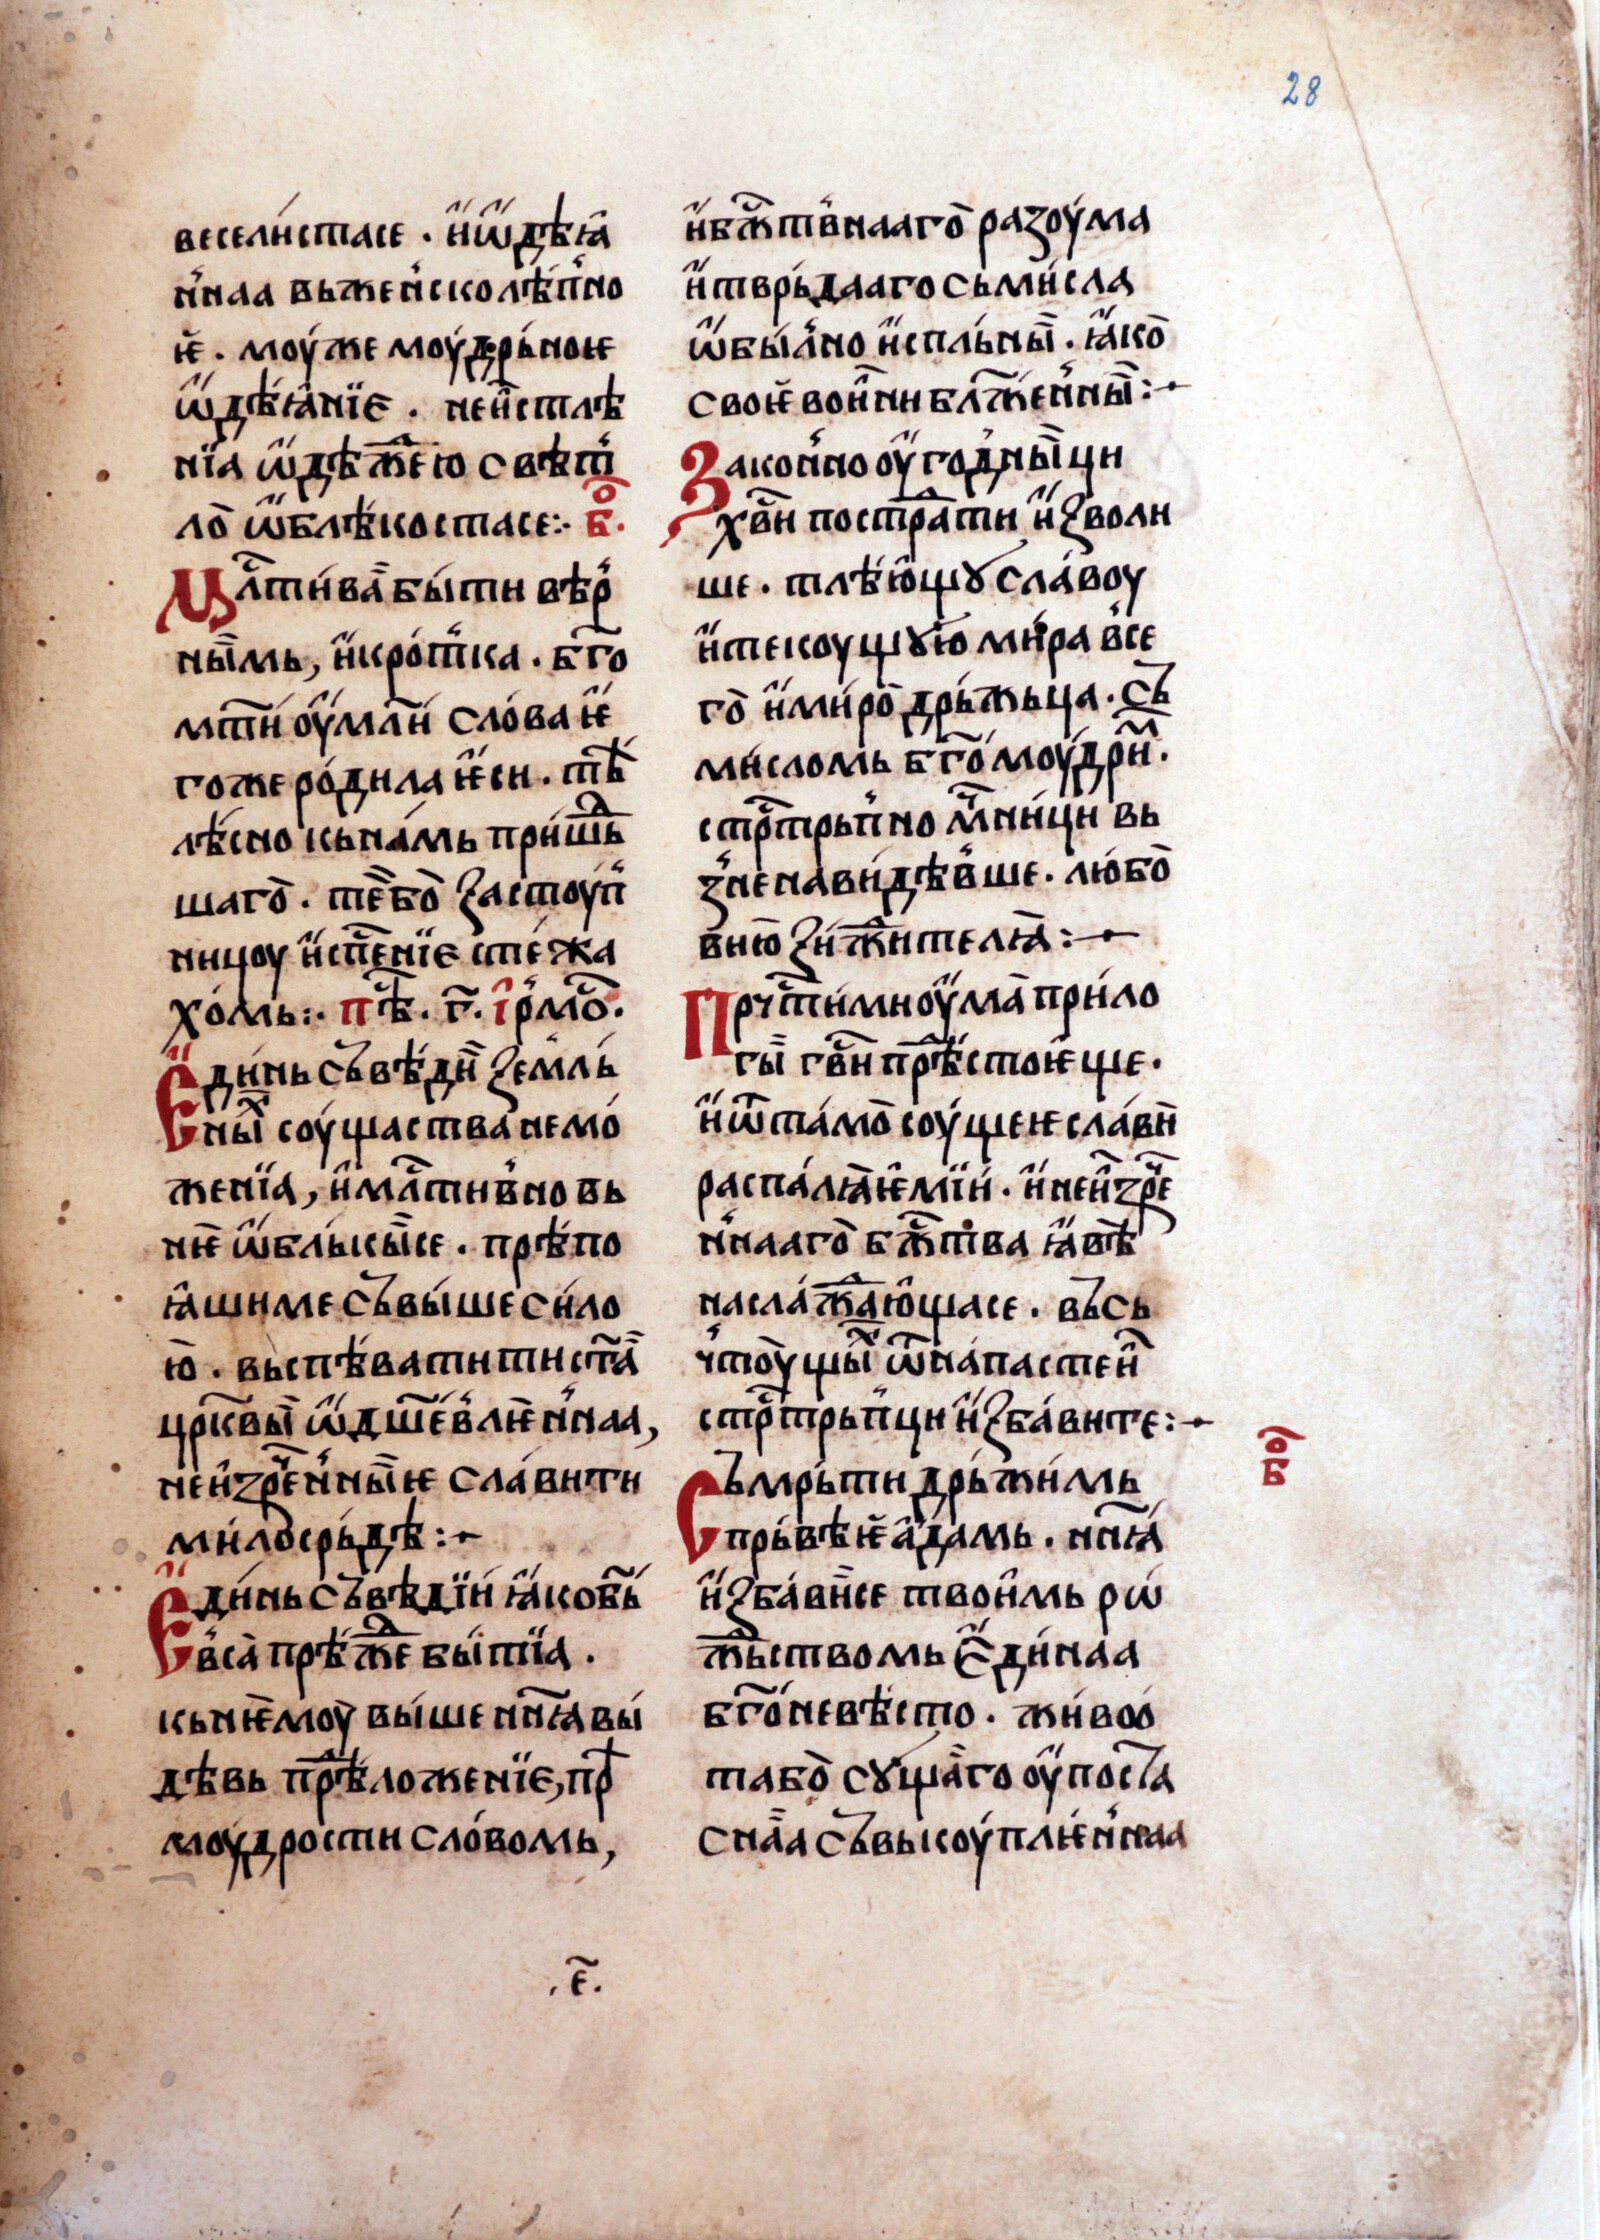 28
веселистасе · и҆ѡ҆дѣꙗ
н҆наа вьжен҆сколѣп҆но
ѥ · моуже моудрьноѥ
ѡ҆дѣꙗнїе · неи҆стлѣ
нїа ѡ҆дѣж҃ею свѣт
ло ѡ҆блѣкостасе:· б҃·
Мл҃тива быти вѣр
ны̑мь, и҆крот҆ка · б҃го
мт҃и оу҆мл҃и слова ѥ҆
гоже родила ѥ҆си · тѣ
лѣсно кьнамь приш҃ь
шаго · те̑бо застоуп
ницоу и҆сп҃енїе стежа
хомь:· пѣ҃ · г҃· і҆рмо҃·
Е҆динь съвѣди̑ земль
ны̑х соущаства немо
женїа, и҆мл҃тив҆но вь
нѥ ѡ҆блькы̑се · прѣпо
ꙗшиме съвыше сило
ю · вьспѣватити ст҃а
црк҃вы ѡ҆дш҃евлѥн҆наа,
неи҆зре҃н҆ныѥ славити
милосрьдѣ:~
Е҆динь съвѣдїи ꙗ҆ковы
в҆са прѣж҃е бытїа ·
кьнѥмоу выше нн҃ꙗ вы
дѣвь прѣ҃ложенїе, пр
моудрости словомь,
·е҃·
и҆бж҃тв҆нааго разоума
и҆тврьдааго съмисла
ѡ҆был҆но и҆спльны̑ · ꙗ҆ко
своѥ вои҆ни бл҃жен҆ны̑:~
Закон҆но оу҆годныци
хв҃и постр҃ати и҆зволи
ше · тлѣющꙋ славоу
и҆текоущꙋю мира в҆се
го и҆миродрьжьца · съ
мисломь б҃гомоудри̑м ·
стр҃трьп҆но м҃чници вь
з҆ненавидѣв҆ше · любо
вию зиж҃ителꙗ:~
Прч҃тимиоу҆ма прило
гы̑ гв҃и прѣ҃стоѥще ·
и҆ѿтамо соущеѥ слави̑
распалꙗѥмїи · и҆неи҆зре҃
н҆нааго бж҃тва ꙗ҆вѣ
наслаж҃аю҆щасе · въсь
ч҆тоущы̑х ѿнапастеи̑
стр҃трьп҆ци и҆збавите:~
об
Съмрьти дрьжимь
прьвѣѥ а҆дамь · нн҃ꙗ
и҆збави̑се твои҆мь рѡ
ж҃ьствомь е҆динаа
б҃гоневѣсто · живоо
табо сꙋщаго оу҆поста
сна̑а съвькоуплѥн҆наа